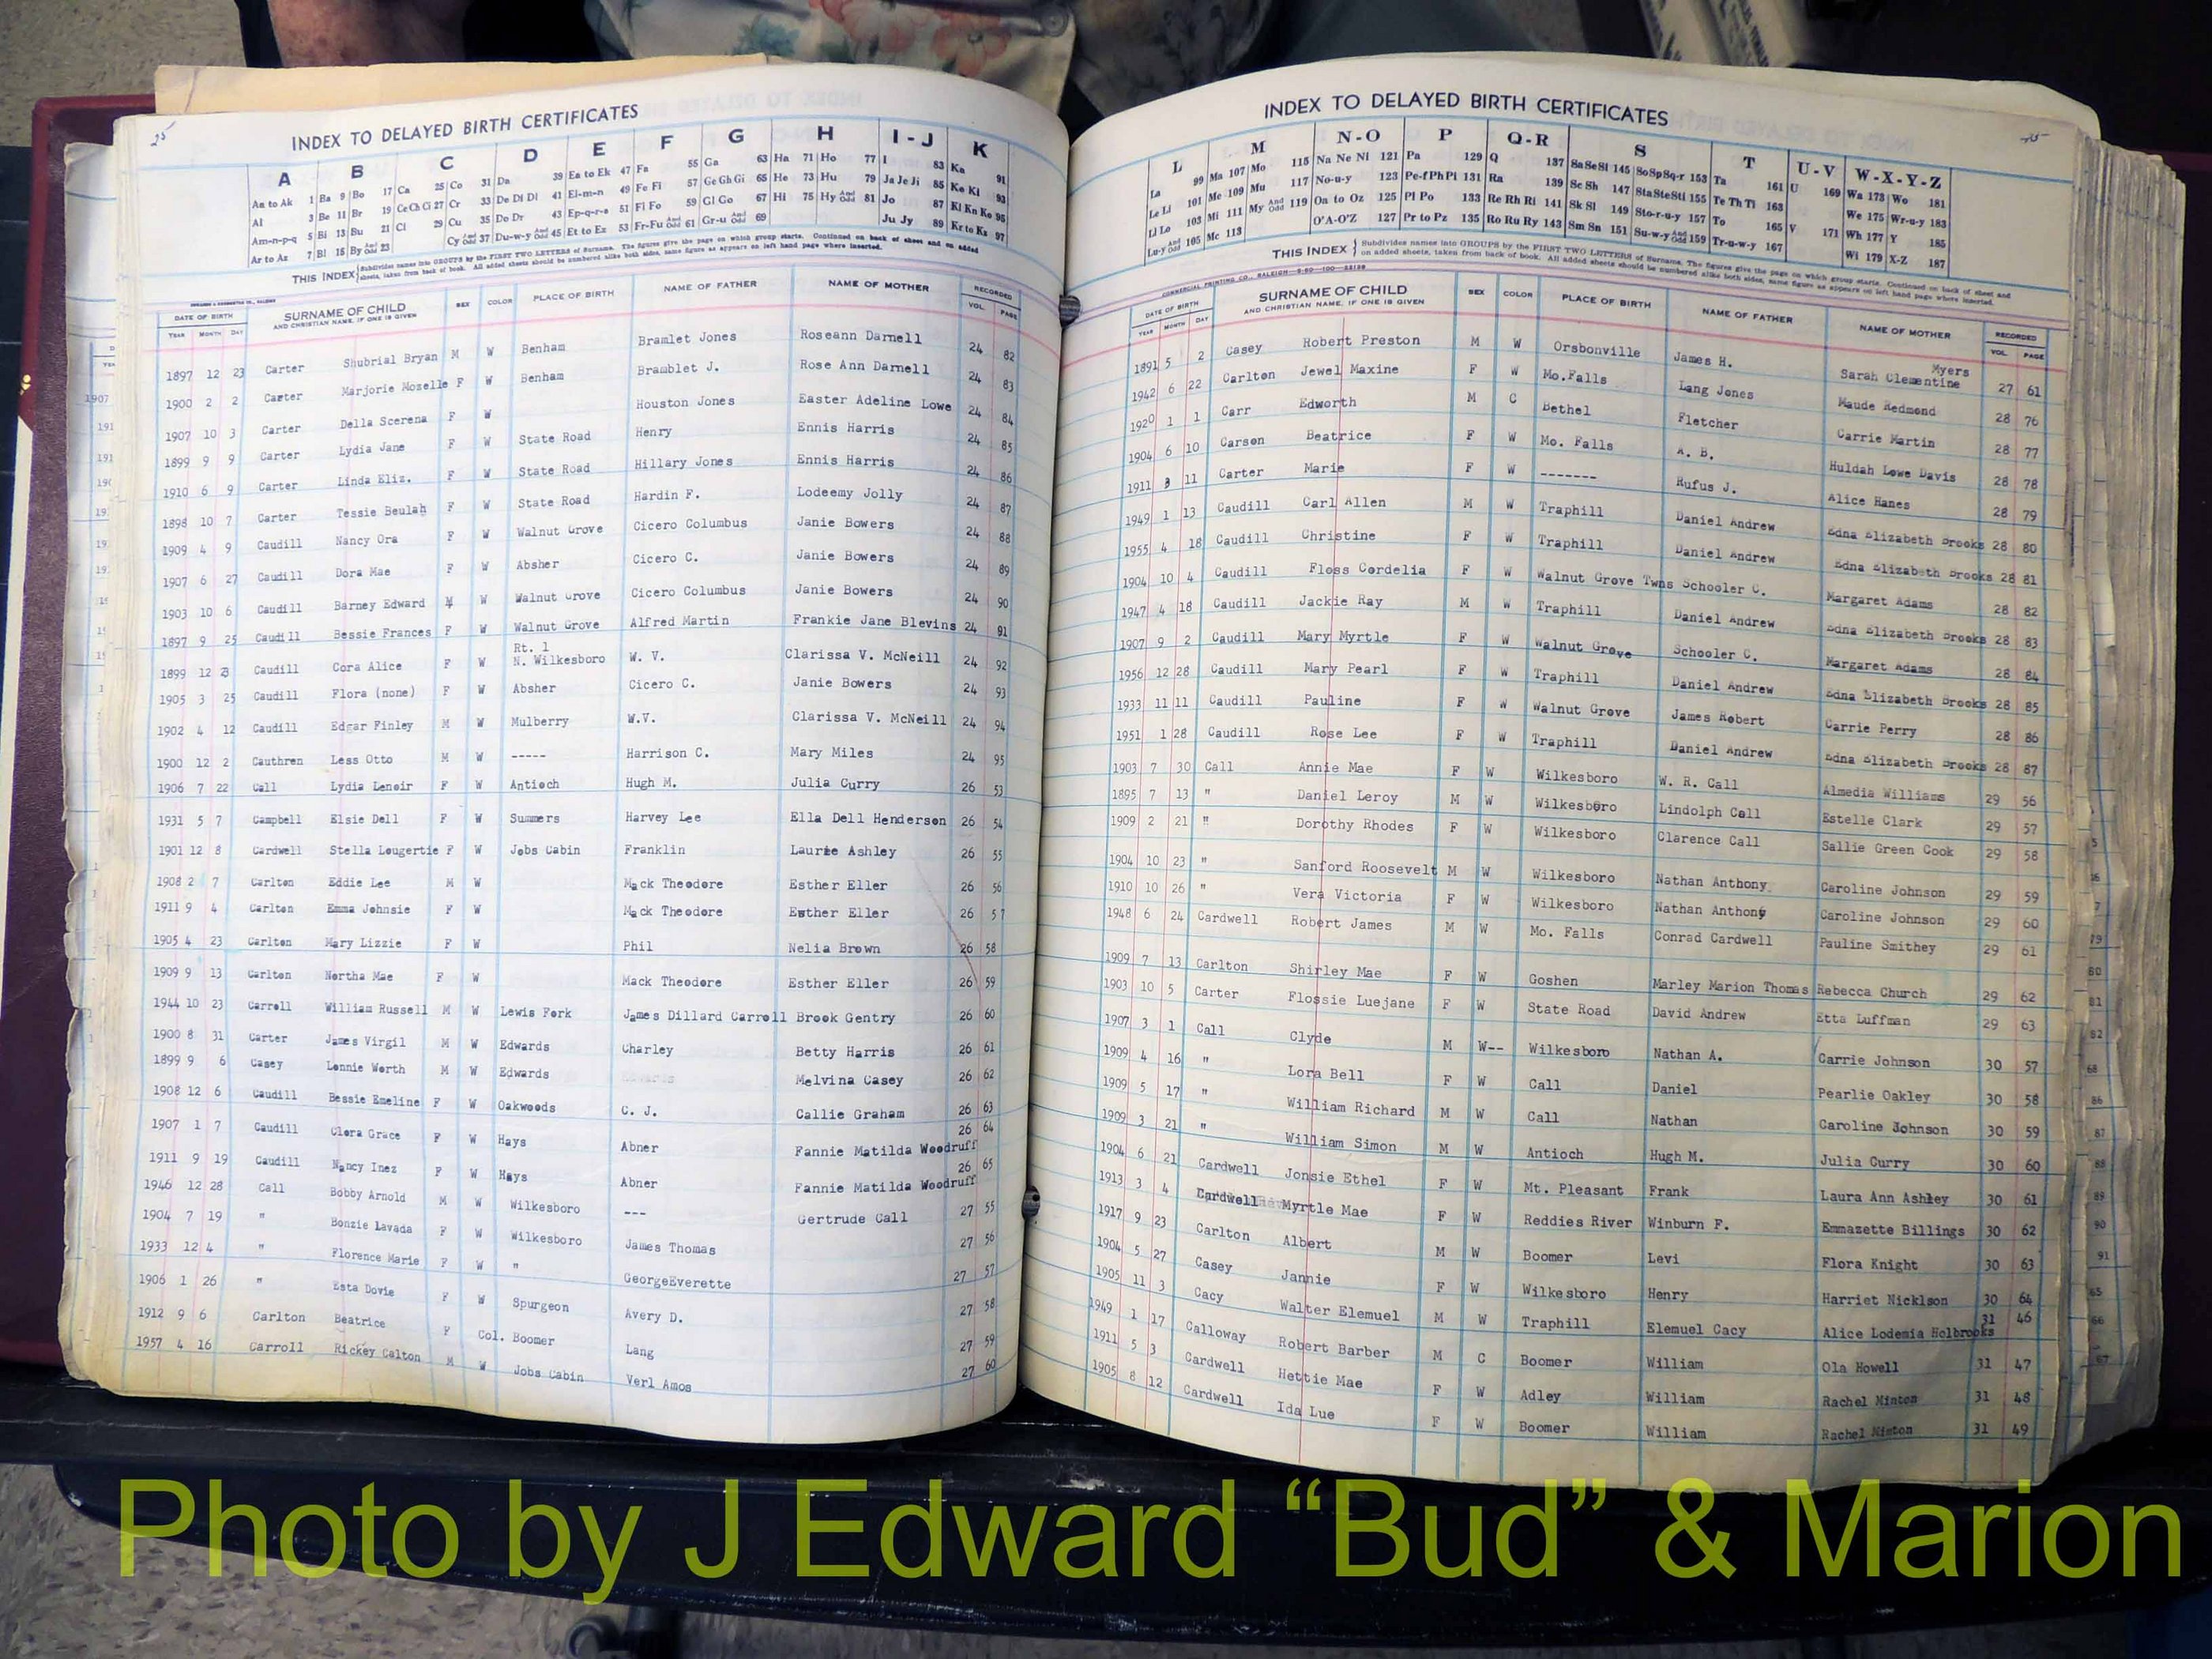 25
INDEX TO DELAYED BIRTH CERTIFICATES
A B C D E F G H I-J K
Aa to Ak 1 Ba 9 Bo 17 Ca 25 Co 31 Da 39 Ea to Ek 47 Fa 55 Ga 63 Ha 71 Ho 77 I 83 Ka 91
Al 3 Be 11 Br 19 Ce Ch Ci 27 Cr 33 De Di Dl 41 El-m-n 49 Fe Fi 57 Ge Gh Gi 65 He 73 Hu 79 Ja Je Ji 85 Ke Ki 93
Am-n-p-q 5 Bi 13 Bu 21 Cl 29 Cu 35 Do Dr 43 Ep-q-r-s 51 Fl Fo 59 Gl Go 67 Hi 75 Hy And Odd 81 Jo 87 Kl Kn Ko 95
Ar to Az 7 Bl 15 By Odd 23 Cy And Odd 37 Du-w-y And Odd 45 Et to Ez 53 Fr-Fu And Odd 61 Gr-u And Odd 69 Ju Jy 89 Kr to Ks 97
THIS INDEX Subdivides names into GROUPS by the FIRST TWO LETTERS of Surname. The figures give the page on which group starts. Continued on back of sheet and on added
sheets, taken from back of book. All added sheets should be numbered alike both sides, same figure as appears on left hand page where inserted.
DATE OF BIRTH SURNAME OF CHILD SEX COLOR PLACE OF BIRTH NAME OF FATHER NAME OF MOTHER RECORDED
YEAR MONTH DAY AND CHRISTIAN NAME, IF ONE IS GIVEN VOL. PAGE
1897 12 23 Carter Shubrial Bryan M W Benham Bramlet Jones Roseann Darnell 24 82
1900 2 2 Carter Marjorie Mozelle F W Benham Bramblet J. Rose Ann Darnell 24 83
1907 10 3 Carter Della Scerena F W Houston Jones Easter Adeline Lowe 24 84
1899 9 9 Carter Lydia Jane F W State Road Henry Ennis Harris 24 85
1910 6 9 Carter Linda Eliz. F W State Road Hillary Jones Ennis Harris 24 86
1898 10 7 Carter Tessie Beulah F W State Road Hardin F. Lodeemy Jolly 24 87
1909 4 9 Caudill Nancy Ora F W Walnut Grove Cicero Columbus Janie Bowers 24 88
1907 6 27 Caudill Dora Mae F W Absher Cicero C. Janie Bowers 24 89
1903 10 6 Caudill Barney Edward M W Walnut Grove Cicero Columbus Janie Bowers 24 90
1897 9 25 Caudill Bessie Frances F W Walnut Grove Alfred Martin Frankie Jane Blevins 24 91
Rt. 1
1899 12 3 Caudill Cora Alice F W N. Wilkesboro W. V. Clarissa V. McNeill 24 92
1905 3 25 Caudill Flora (none) F W Absher Cicero C. Janie Bowers 24 93
1902 4 12 Caudill Edgar Finley M W Mulberry W.V. Clarissa V. McNeill 24 94
1900 12 2 Cauthren Less Otto M W ----- Harrison C. Mary Miles 24 95
1906 7 22 Call Lydia Lenoir F W Antioch Hugh M. Julia Curry 26 53
1931 5 7 Campbell Elsie Dell F W Summers Harvey Lee Ella Dell Henderson 26 54
1901 12 8 Cardwell Stella Lougertie F W Jobs Cabin Franklin Laurie Ashley 26 55
1908 2 7 Carlton Eddie Lee M W Mack Theodore Esther Eller 26 56
1911 9 4 Carlton Emma Johnsie F W Mack Theodore Esther Eller 26 57
1905 4 23 Carlton Mary Lizzie F W Phil Nelia Brown 26 58
1909 9 13 Carlton Nertha Mae F W Mack Theodore Esther Eller 26 59
1944 10 23 Carroll William Russell M W Lewis Fork James Dillard Carroll Brook Gentry 26 60
1900 8 31 Carter James Virgil M W Edwards Charley Betty Harris 26 61
1899 9 6 Casey Lonnie Worth M W Edwards Melvina Casey 26 62
1908 12 6 Caudill Bessie Emeline F W Oakwoods C. J. Callie Graham 26 63
1907 1 7 Caudill Clora Grace F W Hays Abner Fannie Matilda Woodruff 26 64
1911 9 19 Caudill Nancy Inez F W Hays Abner Fannie Matilda Woodruff 26 65
1946 12 28 Call Bobby Arnold M W Wilkesboro --- Gertrude Call 27 55
1904 7 19 " Bonzie Lavada F W Wilkesboro James Thomas 27 56
1933 12 4 " Florence Marie F W " GeorgeEverette 27 57
1906 1 26 " Esta Dovie F W Spurgeon Avery D. 27 58
1912 9 6 Carlton Beatrice F Col. Boomer Lang 27 59
1957 4 16 Carroll Rickey Calton M W Jobs Cabin Verl Amos 27 60
INDEX TO DELAYED BIRTH CERTIFICATES
L M N-O P Q-R S T U-V W-X-Y-Z
La 99 Ma 107 Mo 115 Na Ne Ni 121 Pa 129 Q 137 Sa Se Si 145 So Sp Sq-r 153 Ta 161 U 169 Wa 173 Wo 181
Le Li 101 Me 109 Mu 117 No-u-y 123 Pe-f Ph Pi 131 Ra 139 Sc Sh 147 Sta Ste Sti 155 Te Th Ti 163 We 175 Wr-u-y 183
Ll Lo 103 Mi 111 My And Odd 119 Oa to Oz 125 Pl Po 133 Re Rh Ri 141 Sk Sl 149 Sto-r-u-y 157 To 165 V 171 Wh 177 Y 185
Lu-y And Odd 105 Mc 113 O'A-O'Z 127 Pr to Pz 135 Ro Ru Ry 143 Sm Sn 151 Su-w-y And Odd 159 Tr-u-w-y 167 Wi 179 X-Z 187
THIS INDEX Subdivides names into GROUPS by the FIRST TWO LETTERS of Surname. The figures give the page on which group starts. Continued on back of sheet and
on added sheets, taken from back of book. All added sheets should be numbered alike both sides, same figure as appears on left hand page where inserted.
DATE OF BIRTH SURNAME OF CHILD SEX COLOR PLACE OF BIRTH NAME OF FATHER NAME OF MOTHER RECORDED
YEAR MONTH DAY AND CHRISTIAN NAME, IF ONE IS GIVEN VOL. PAGE
Myers
1891 5 2 Casey Robert Preston M W Orsbonville James H. Sarah Clementine 27 61
1942 6 22 Carlton Jewel Maxine F W Mo.Falls Lang Jones Maude Redmond 28 76
1920 1 1 Carr Edworth M C Bethel Fletcher Carrie Martin 28 77
1904 6 10 Carson Beatrice F W Mo. Falls A. B. Huldah Lowe Davis 28 78
1911 3 11 Carter Marie F W ------- Rufus J. Alice Hanes 28 79
1949 1 13 Caudill Carl Allen M W Traphill Daniel Andrew Edna Elizabeth Brooks 28 80
1955 4 18 Caudill Christine F W Traphill Daniel Andrew Edna Elizabeth Brooks 28 81
1904 10 4 Caudill Floss Cordelia F W Walnut Grove Twns Schooler C. Margaret Adams 28 82
1947 4 18 Caudill Jackie Ray M W Traphill Daniel Andrew Edna Elizabeth Brooks 28 83
1907 9 2 Caudill Mary Myrtle F W Walnut Grove Schooler C. Margaret Adams 28 84
1956 12 28 Caudill Mary Pearl F W Traphill Daniel Andrew Edna Elizabeth Brooks 28 85
1933 11 11 Caudill Pauline F W Walnut Grove James Robert Carrie Perry 28 86
1951 1 28 Caudill Rose Lee F W Traphill Daniel Andrew Edna Elizabeth Brooks 28 87
1903 7 30 Call Annie Mae F W Wilkesboro W. R. Call Almedia Williams 29 56
1895 7 13 " Daniel Leroy M W Wilkesboro Lindolph Call Estelle Clark 29 57
1909 2 21 " Dorothy Rhodes F W Wilkesboro Clarence Call Sallie Green Cook 29 58
1904 10 23 " Sanford Roosevelt M W Wilkesboro Nathan Anthony Caroline Johnson 29 59
1910 10 26 " Vera Victoria F W Wilkesboro Nathan Anthony Caroline Johnson 29 60
1948 6 24 Cardwell Robert James M W Mo. Falls Conrad Cardwell Pauline Smithey 29 61
1909 7 13 Carlton Shirley Mae F W Goshen Marley Marion Thomas Rebecca Church 29 62
1903 10 5 Carter Flossie Luejane F W State Road David Andrew Etta Luffman 29 63
1907 3 1 Call Clyde M W-- Wilkesboro Nathan A. Carrie Johnson 30 57
1909 4 16 " Lora Bell F W Call Daniel Pearlie Oakley 30 58
1909 5 17 " William Richard M W Call Nathan Caroline Johnson 30 59
1909 3 21 " William Simon M W Antioch Hugh M. Julia Curry 30 60
1904 6 21 Cardwell Jonsie Ethel F W Mt. Pleasant Frank Laura Ann Ashley 30 61
1913 3 4 Cardwell Myrtle Mae F W Reddies River Winburn F. Emmazette Billings 30 62
1917 9 23 Carlton Albert M W Boomer Levi Flora Knight 30 63
1904 5 27 Casey Jannie F W Wilkesboro Henry Harriet Nicklson 30 64
1905 11 3 Cacy Walter Elemuel M W Traphill Elemuel Cacy Alice Lodemia Holbrooks 31 46
1949 1 17 Calloway Robert Barber M C Boomer William Ola Howell 31 47
1911 5 3 Cardwell Hettie Mae F W Adley William Rachel Minton 31 48
1905 8 12 Cardwell Ida Lue F W Boomer William Rachel Minton 31 49
Photo by J Edward “Bud” & Marion